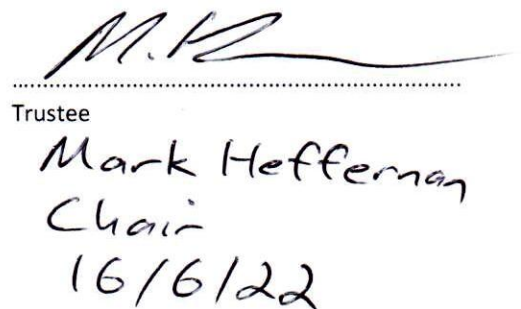 M. H
Trustee
Mark Heffernan
Chair
16/6/22